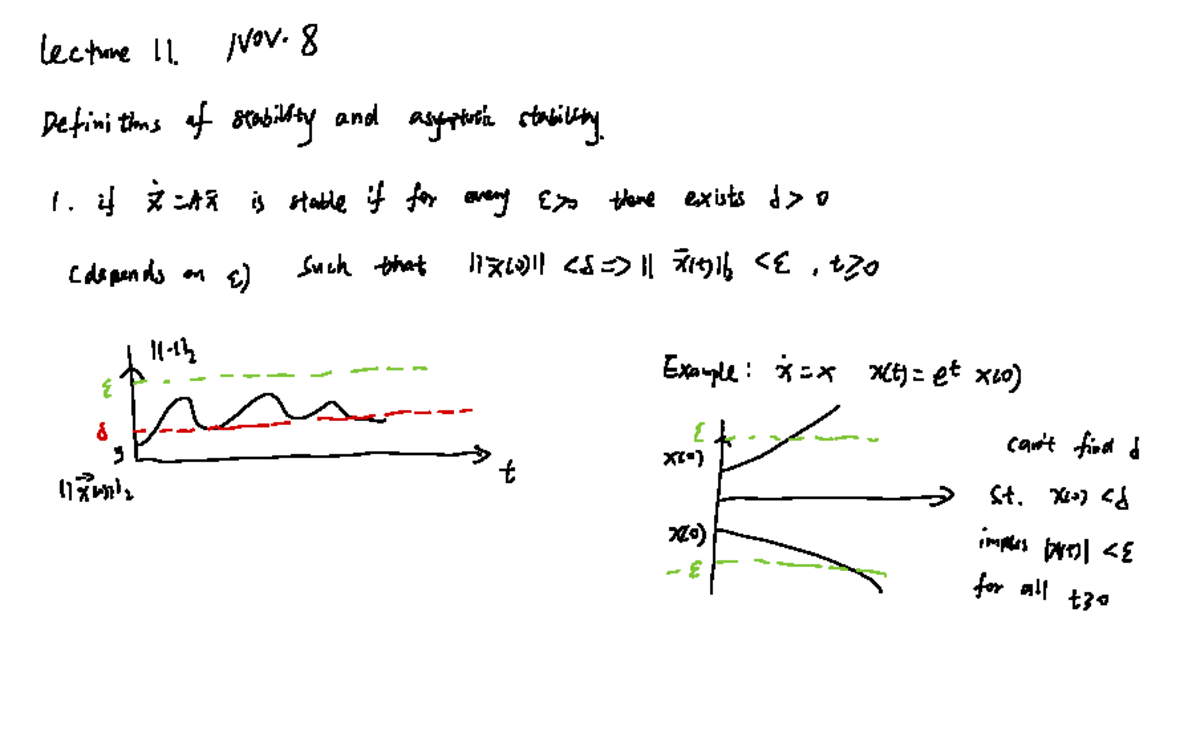 Lecture 11. Nov. 8
Definitions of stability and asymptotic stability.
1. if ẋ = Ax̄ is stable if for every ε>0 there exists δ > 0
(depends on ε) Such that ||x̄(0)|| < δ => || x̄(t)||₂ < ε , t≥0
||·||₂
ε
δ
||x⃗(0)||₂
t
Example: ẋ = x x(t) = e^t x(0)
ε
x(0)
x(0)
-ε
can't find δ
s.t. x(0) < δ
implies |x(t)| < ε
for all t≥0